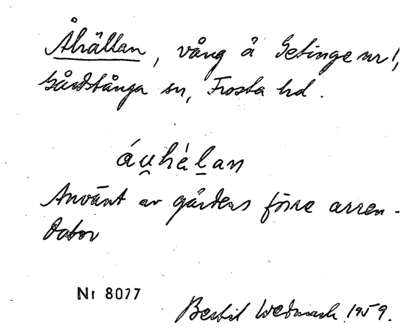 Åhällan, vång å Getinge nr 1,
Gårdstånga sn, Frosta hd.
áu̯hàl̲an
Använt av gårdens förre arren-
dator
Nr 8077
Bertil Wedmark 1959.